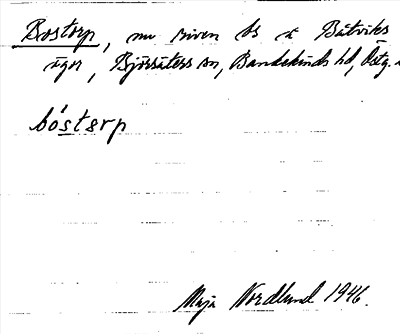 Bostorp, nu riven bs å Båtviks
ägor, Björsäters sn, Bankekinds hd, Östg.
bóstorp
Maja Nordlund 1946.